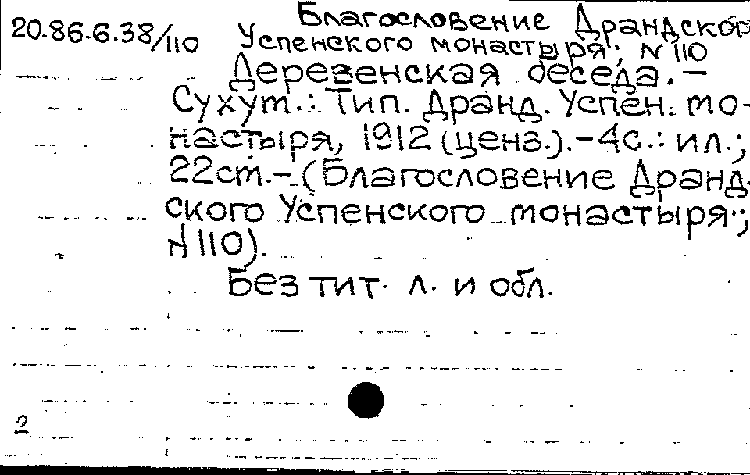 20.86.6.38/110
Благословение Драндского
Успенского монастыря; N 110
Деревенская беседа. –
Сухум.: Тип. Дранд. Успен. мо-
настыря, 1912 (ценз.). – 4с.: ил.;
22cm. – (Благословение Дранд-
ского Успенского монастыря;
N 110).
Без тит. л. и обл.
2